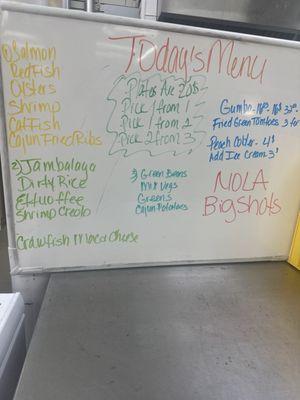 Today's Menu
1) Salmon
Red Fish
Oysters
Shrimp
CatFish
Cajun Fried Ribs
2) Jambalaya
Dirty Rice
Etouffee
Shrimp Creole
Crawfish Mac n Cheese
Plates Are 20$
Pick 1 from 1
Pick 1 from 2
Pick 2 from 3
3) Green Beans
Mix Vegs
Greens
Cajun Potatoes
Gumbo
Fried Green Tomatoes 3 for
Peach Cobler 4$
Add Ice Cream 3$
NOLA
Bigshots